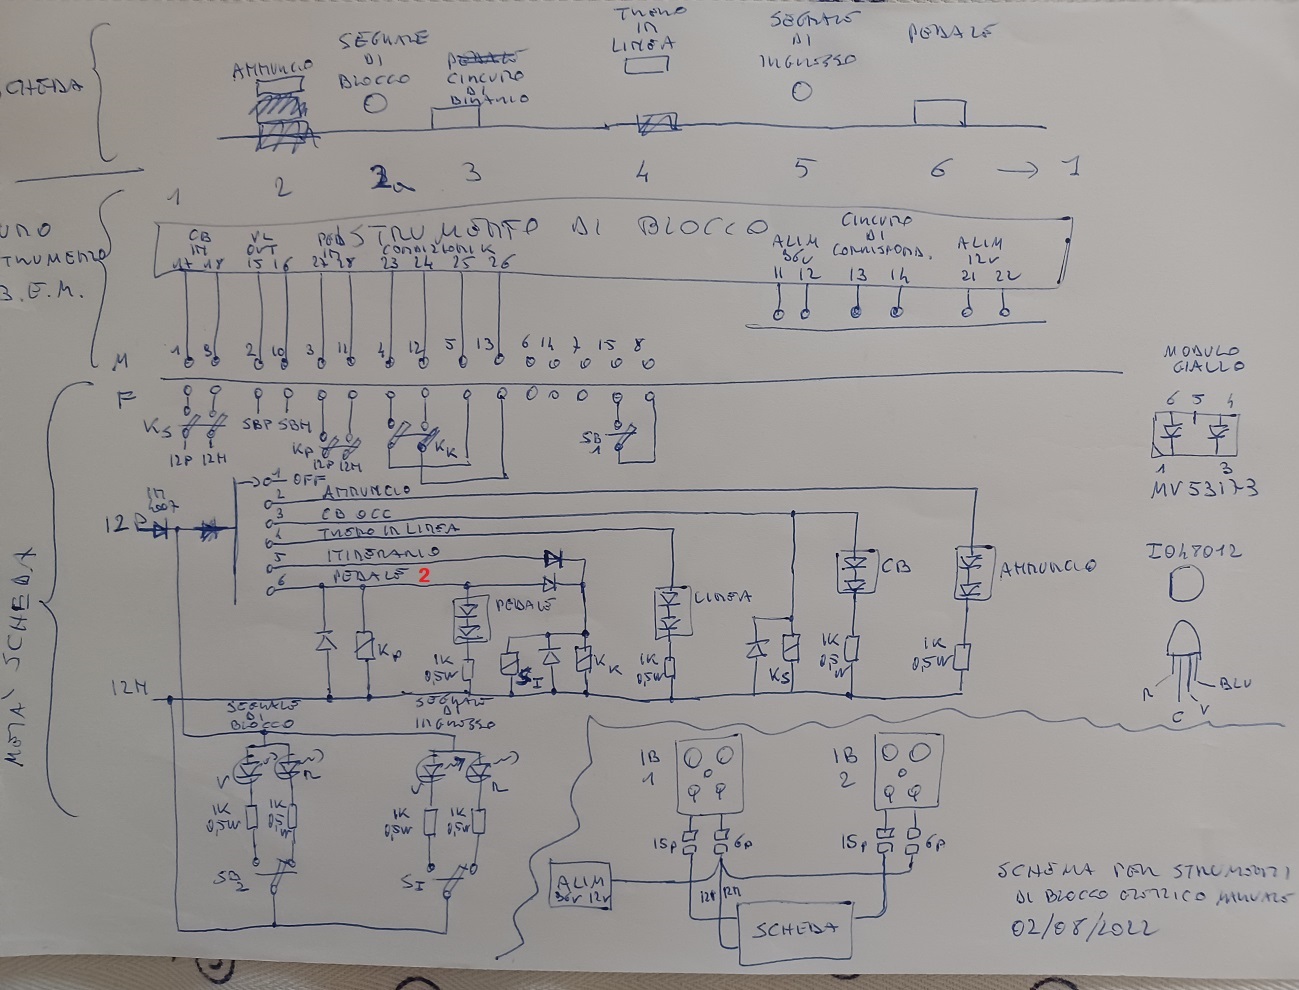 SCHEDA
ANNUNCIO
SEGNALE
DI
BLOCCO
PEDALE
CIRCUITO
DI
BINARIO
TRENO
IN
LINEA
SEGNALE
DI
INGRESSO
PEDALE
1 2 2a 3 4 5 6 → 1
STRUMENTO DI BLOCCO
CB
IN
17 18
VL
OUT
15 16
PED
IN
27 28
CONDIZIONI K
23 24 25 26
ALIM
36V
11 12
CIRCUITO
DI
CORRISPOND.
13 14
ALIM
12V
21 22
B.E.M.
M
1 9 2 10 3 11 4 12 5 13 6 14 7 15 8
F
KS
12P 12M
SBP SBM
KP
12P 12M
KK
SB
1
MODULO
GIALLO
6 5 4
1 3
MV 53173
12P
1N
4007
1 OFF
2 ANNUNCIO
3 CB OCC
4 TRENO IN LINEA
5 ITINERARIO
6 PEDALE 2
KP
PEDALE
1K
0,5W
SI
KK
LINEA
1K
0,5W
KS
CB
1K
0,5W
ANNUNCIO
1K
0,5W
R C V BLU
12M
META' SCHEDA
SEGNALE
DI
BLOCCO
SEGNALE
DI
INGRESSO
V R
V R
1K
0,5W
1K
0,5W
1K
0,5W
1K
0,5W
SB
2
SI
IB
1
IB
2
15P 6P
15P 6P
ALIM
36V 12V
SCHEDA
SCHEMA PER STRUMENTI
DI BLOCCO ELETTRICO MANUALE
02/08/2022